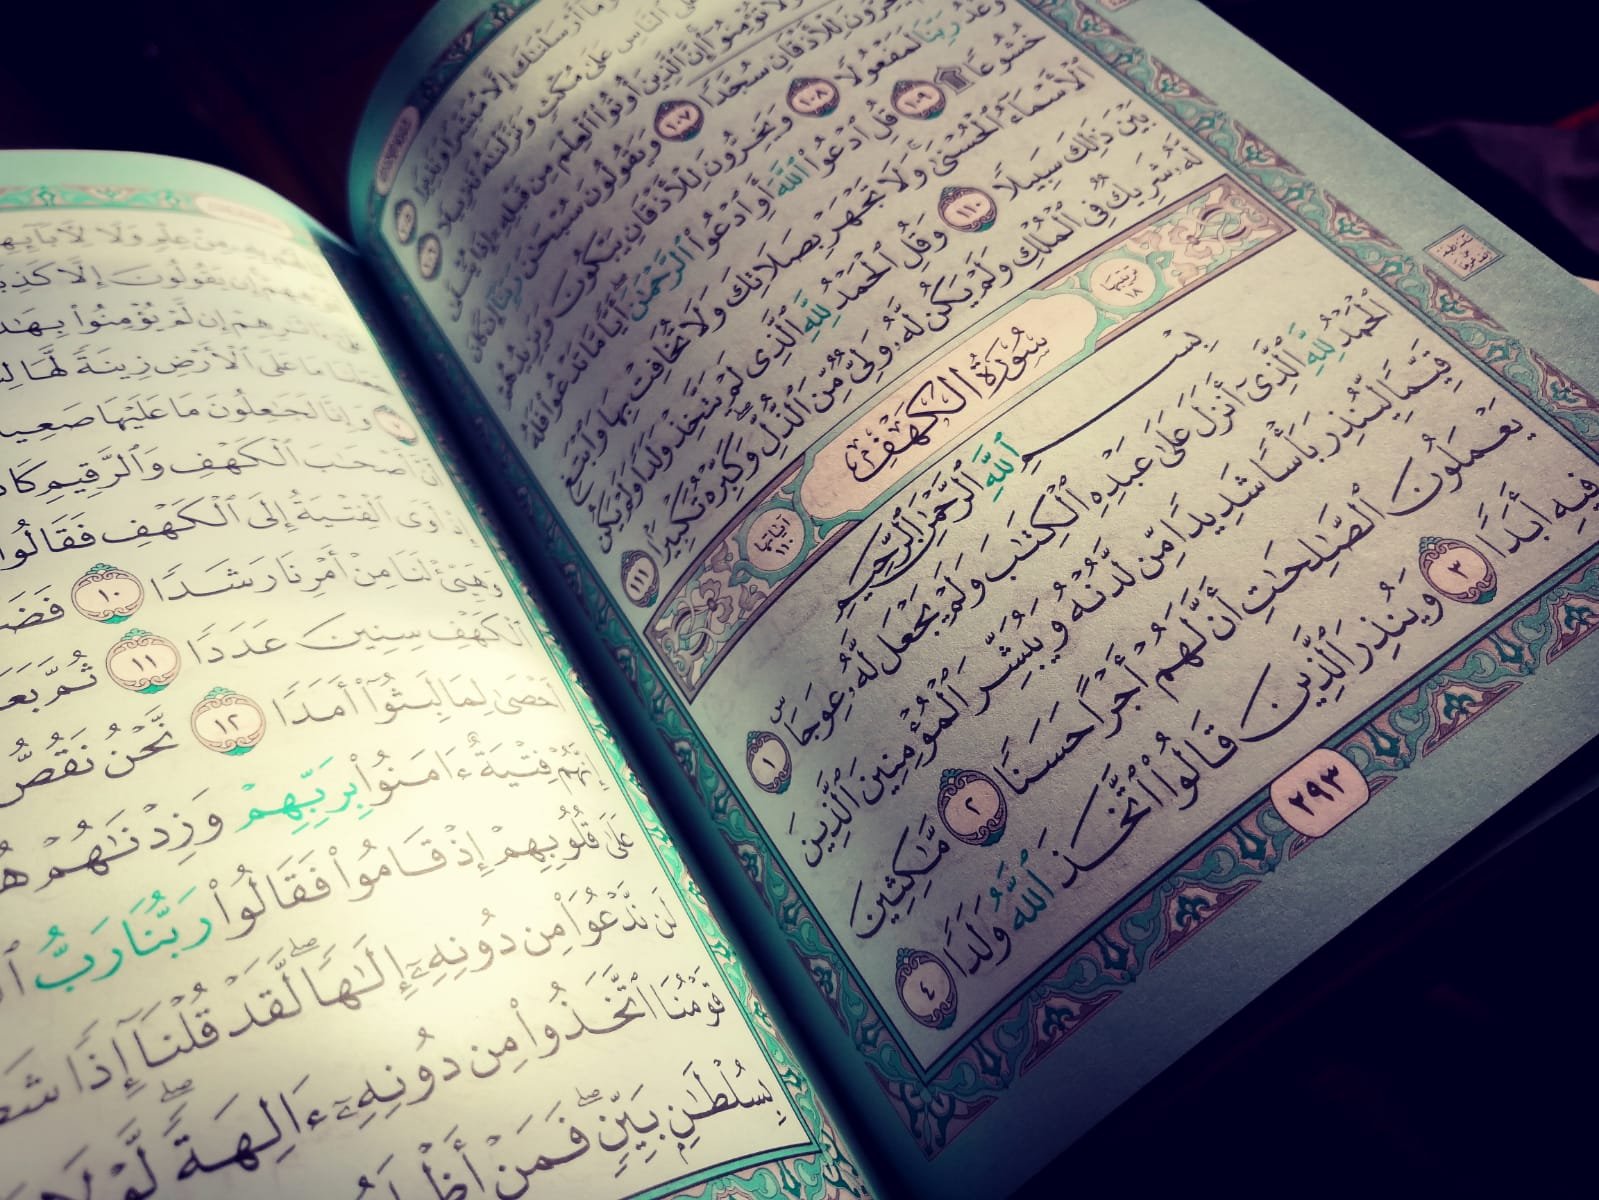 وَمَآ أَرۡسَلۡنَٰكَ إِلَّا مُبَشِّرٗا وَنَذِيرٗا ١٠٥
عَلَى ٱلنَّاسِ عَلَىٰ مُكۡثٖ وَنَزَّلۡنَٰهُ تَنزِيلٗا ١٠٦
لَا تُؤۡمِنُوٓاْۚ إِنَّ ٱلَّذِينَ أُوتُواْ ٱلۡعِلۡمَ مِن قَبۡلِهِۦٓ إِذَا يُتۡلَىٰ
يَخِرُّونَۤ لِلۡأَذۡقَانِۤ سُجَّدٗاۤ ١٠٧ وَيَقُولُونَ سُبۡحَٰنَ رَبِّنَآ إِن كَانَ
وَعۡدُ رَبِّنَا لَمَفۡعُولٗا ١٠٨ وَيَخِرُّونَ لِلۡأَذۡقَانِ يَبۡكُونَ وَيَزِيدُهُمۡ
خُشُوعٗا ۩ ١٠٩ قُلِ ٱدۡعُواْ ٱللَّهَ أَوِ ٱدۡعُواْ ٱلرَّحۡمَٰنَۖ أَيّٗا مَّا تَدۡعُواْ فَلَهُ
ٱلۡأَسۡمَآءُ ٱلۡحُسۡنَىٰۚ وَلَا تَجۡهَرۡ بِصَلَاتِكَ وَلَا تُخَافِتۡ بِهَا وَٱبۡتَغِ
بَيۡنَ ذَٰلِكَ سَبِيلٗا ١١٠ وَقُلِ ٱلۡحَمۡدُ لِلَّهِ ٱلَّذِي لَمۡ يَتَّخِذۡ وَلَدٗا وَلَمۡ يَكُن
لَّهُۥ شَرِيكٞ فِي ٱلۡمُلۡكِ وَلَمۡ يَكُن لَّهُۥ وَلِيّٞ مِّنَ ٱلذُّلِّۖ وَكَبِّرۡهُ تَكۡبِيرَۢا ١١١
ترتيبها ١٨ سُورَةُ الكَهْفِ آياتها ١١٠
بِسۡمِ ٱللَّهِ ٱلرَّحۡمَٰنِ ٱلرَّحِيمِ
ٱلۡحَمۡدُ لِلَّهِ ٱلَّذِيٓ أَنزَلَ عَلَىٰ عَبۡدِهِ ٱلۡكِتَٰبَ وَلَمۡ يَجۡعَل لَّهُۥ عِوَجَاۜ ١
قَيِّمٗا لِّيُنذِرَ بَأۡسٗا شَدِيدٗا مِّن لَّدُنۡهُ وَيُبَشِّرَ ٱلۡمُؤۡمِنِينَ ٱلَّذِينَ
يَعۡمَلُونَ ٱلصَّٰلِحَٰتِ أَنَّ لَهُمۡ أَجۡرًا حَسَنٗا ٢ مَّٰكِثِينَ
فِيهِ أَبَدٗا ٣ وَيُنذِرَ ٱلَّذِينَ قَالُواْ ٱتَّخَذَ ٱللَّهُ وَلَدٗا ٤
٢٩٣
بِهِۦ مِنۡ عِلۡمٖ وَلَا لِأٓبَآئِهِمۡۚ
إِن يَقُولُونَ إِلَّا كَذِبٗا
ءَاثَٰرِهِمۡ إِن لَّمۡ يُؤۡمِنُواْ بِهَٰذَا
جَعَلۡنَا مَا عَلَى ٱلۡأَرۡضِ زِينَةٗ لَّهَا
٧ وَإِنَّا لَجَٰعِلُونَ مَا عَلَيۡهَا صَعِيدٗا
أَنَّ أَصۡحَٰبَ ٱلۡكَهۡفِ وَٱلرَّقِيمِ كَانُواْ
إِذۡ أَوَى ٱلۡفِتۡيَةُ إِلَى ٱلۡكَهۡفِ فَقَالُواْ
وَهَيِّئۡ لَنَا مِنۡ أَمۡرِنَا رَشَدٗا ١٠ فَضَ
ٱلۡكَهۡفِ سِنِينَ عَدَدٗا ١١ ثُمَّ بَعَ
أَحۡصَىٰ لِمَا لَبِثُوٓاْ أَمَدٗا ١٢ نَّحۡنُ نَقُصُّ
إِنَّهُمۡ فِتۡيَةٌ ءَامَنُواْ بِرَبِّهِمۡ وَزِدۡنَٰهُمۡ هُ
عَلَىٰ قُلُوبِهِمۡ إِذۡ قَامُواْ فَقَالُواْ رَبُّنَا رَبُّ
لَن نَّدۡعُوَاْ مِن دُونِهِۦٓ إِلَٰهٗاۖ لَّقَدۡ قُلۡنَآ إِذٗا شَطَ
قَوۡمُنَا ٱتَّخَذُواْ مِن دُونِهِۦٓ ءَالِهَةٗۖ لَّوۡلَا
بِسُلۡطَٰنِۭ بَيِّنٖۖ فَمَنۡ أَظۡلَمُ